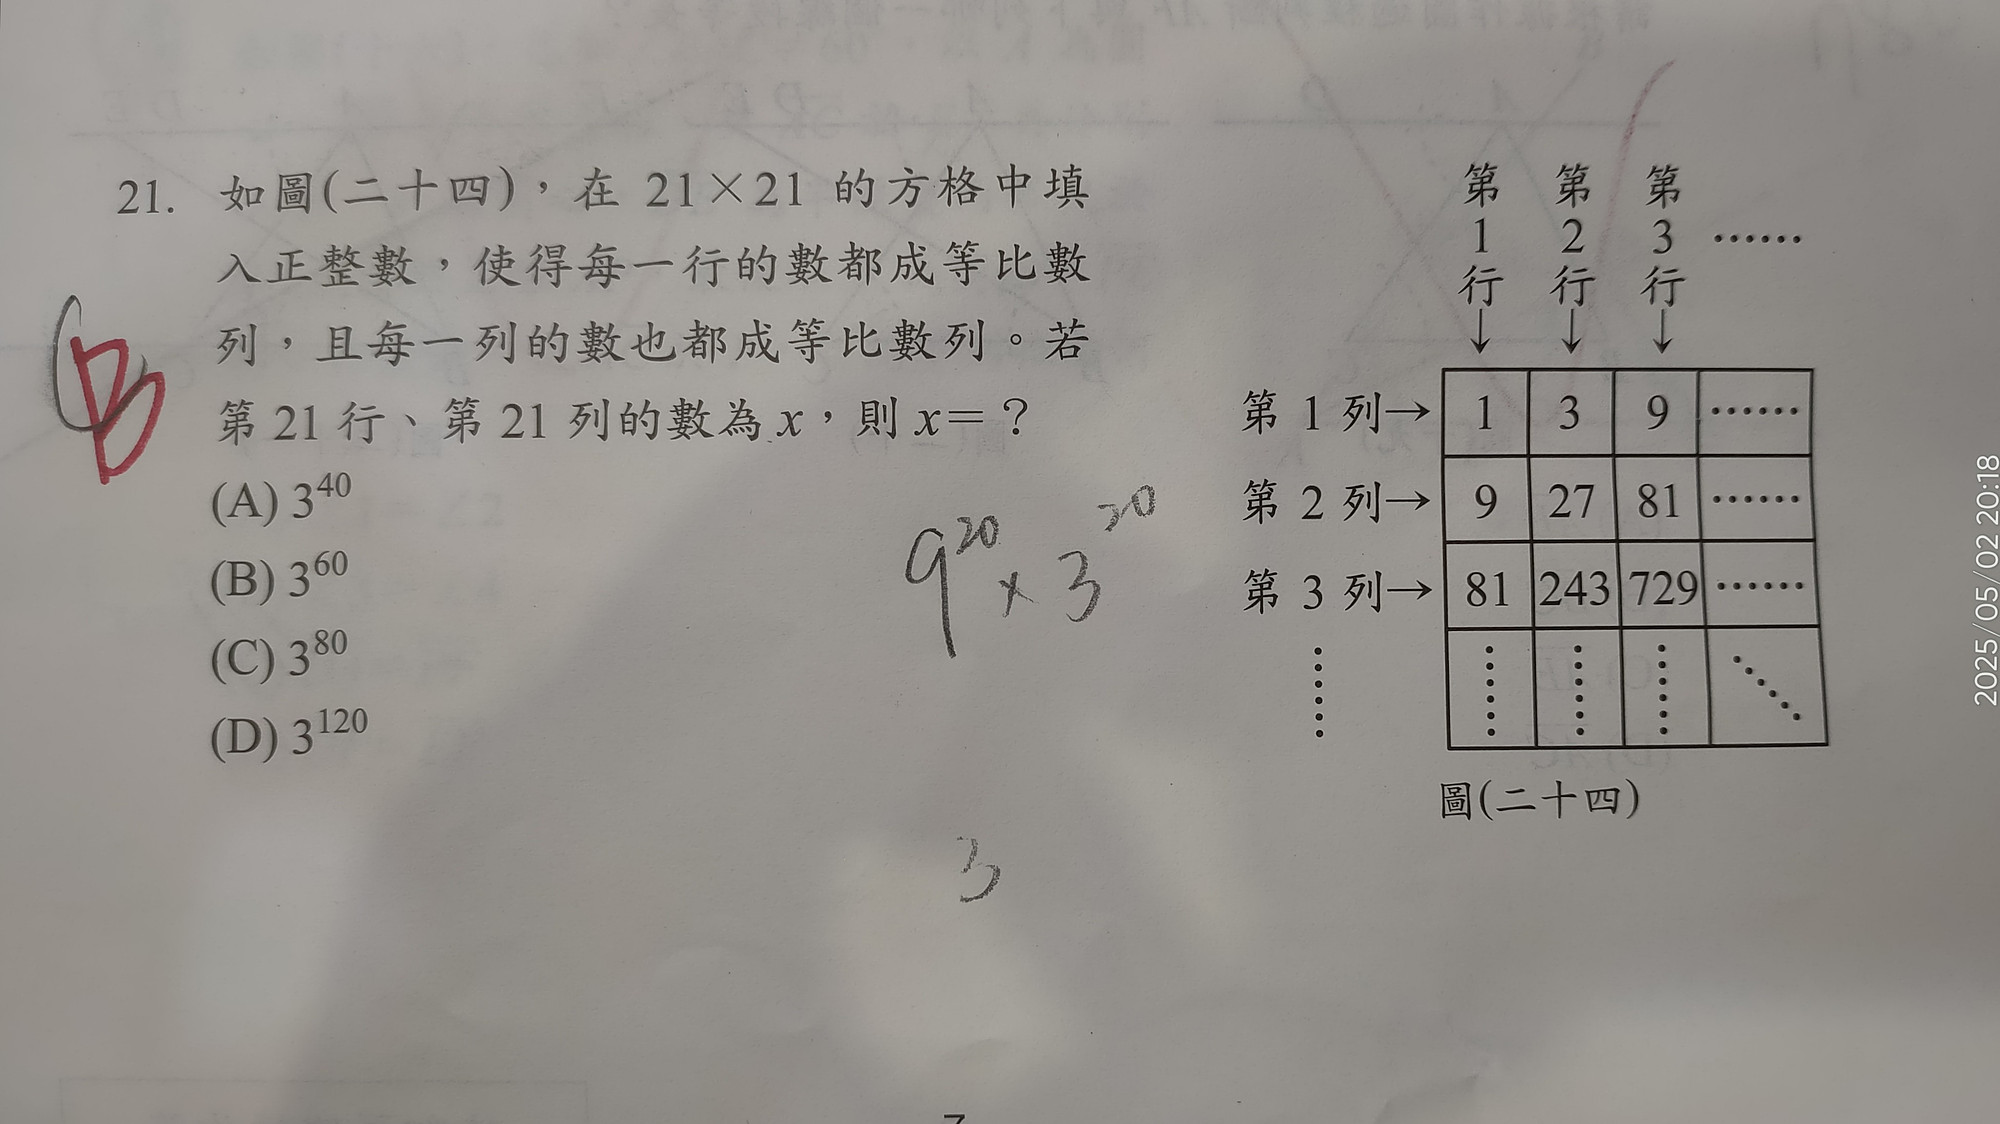 21. 如圖(二十四)，在 21×21 的方格中填
入正整數，使得每一行的數都成等比數
列，且每一列的數也都成等比數列。若
第 21 行、第 21 列的數為 x，則 x＝？
(A) 3^40
(B) 3^60
(C) 3^80
(D) 3^120
B
9^20 × 3^20
3
第1行↓ 第2行↓ 第3行↓ ……
第 1 列→ 1 3 9 ……
第 2 列→ 9 27 81 ……
第 3 列→ 81 243 729 ……
圖(二十四)
2025/05/02 20:18